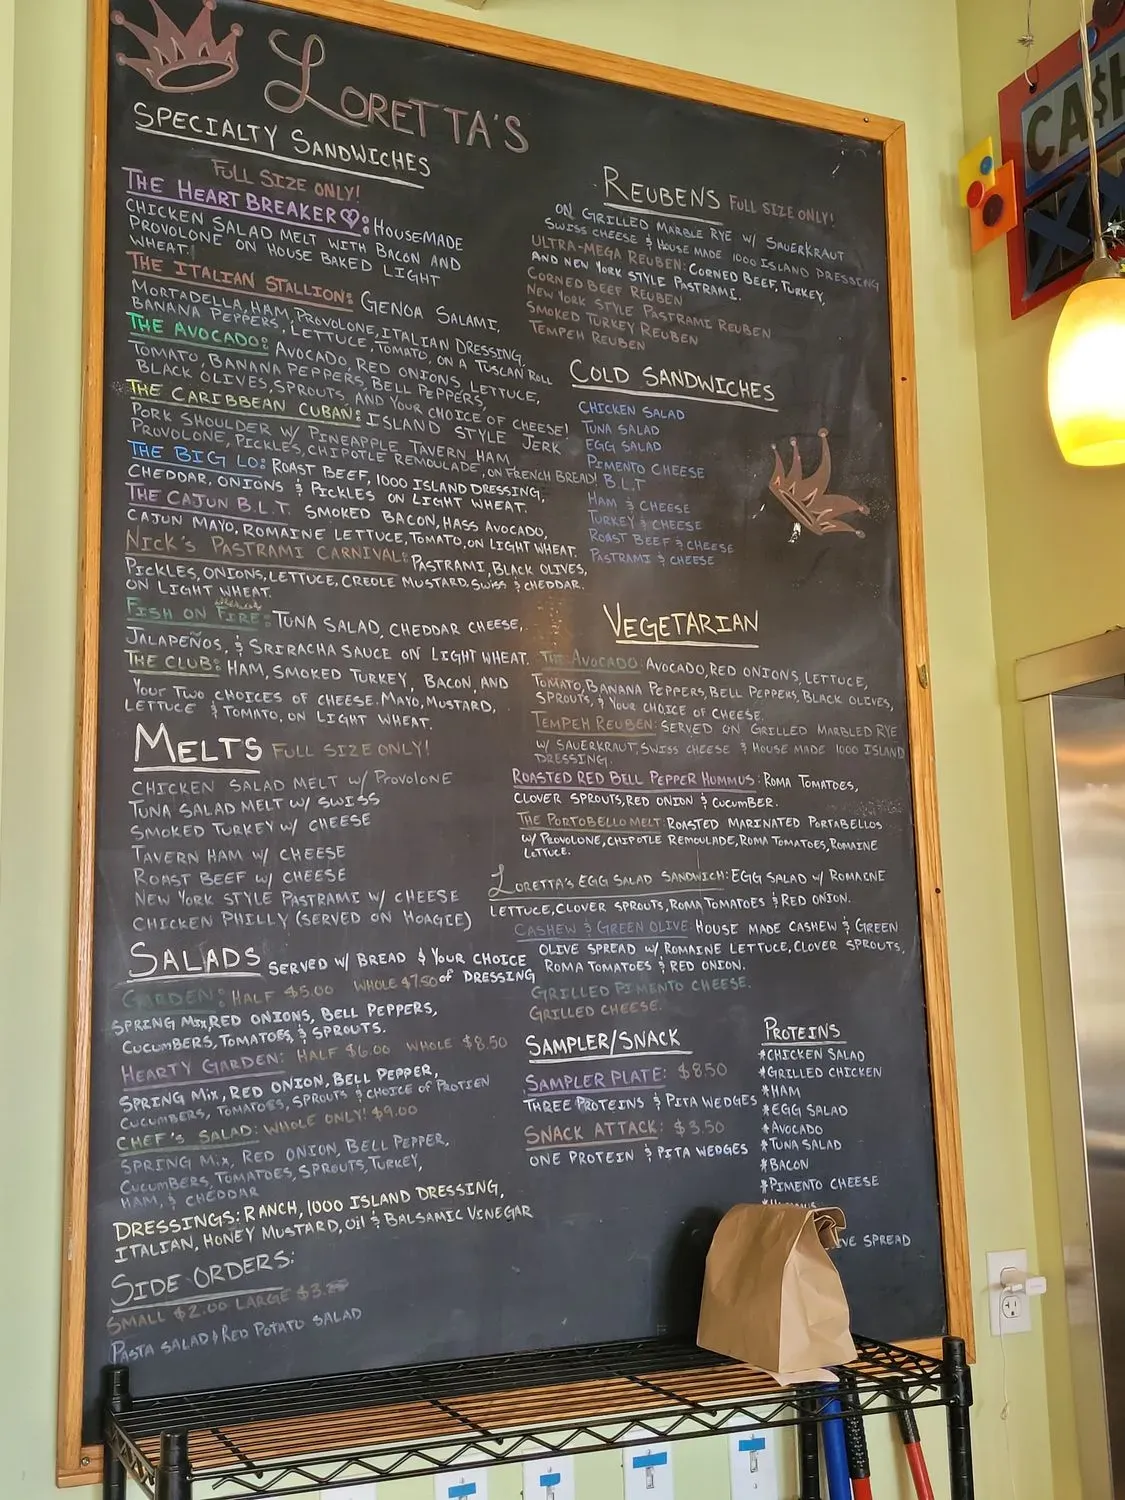 LORETTA'S
SPECIALTY SANDWICHES
FULL SIZE ONLY!
THE HEART BREAKER♡: HOUSEMADE
CHICKEN SALAD MELT WITH BACON AND
PROVOLONE ON HOUSE BAKED LIGHT
WHEAT.
THE ITALIAN STALLION: GENOA SALAMI,
MORTADELLA, HAM, PROVOLONE, ITALIAN DRESSING,
BANANA PEPPERS, LETTUCE, TOMATO, ON A TUSCAN ROLL
THE AVOCADO: AVOCADO, RED ONIONS, LETTUCE,
TOMATO, BANANA PEPPERS, BELL PEPPERS,
BLACK OLIVES, SPROUTS, AND YOUR CHOICE OF CHEESE!
THE CARIBBEAN CUBAN: ISLAND STYLE JERK
PORK SHOULDER W/ PINEAPPLE TAVERN HAM
PROVOLONE, PICKLES, CHIPOTLE REMOULADE, ON FRENCH BREAD!
THE BIG LO: ROAST BEEF, 1000 ISLAND DRESSING,
CHEDDAR, ONIONS & PICKLES ON LIGHT WHEAT.
THE CAJUN B.L.T. SMOKED BACON, HASS AVOCADO,
CAJUN MAYO, ROMAINE LETTUCE, TOMATO, ON LIGHT WHEAT.
NICK'S PASTRAMI CARNIVAL: PASTRAMI, BLACK OLIVES,
PICKLES, ONIONS, LETTUCE, CREOLE MUSTARD, SWISS & CHEDDAR.
ON LIGHT WHEAT.
FISH ON FIRE: TUNA SALAD, CHEDDAR CHEESE,
JALAPEÑOS, & SRIRACHA SAUCE ON LIGHT WHEAT.
THE CLUB: HAM, SMOKED TURKEY, BACON, AND
YOUR TWO CHOICES OF CHEESE. MAYO, MUSTARD,
LETTUCE & TOMATO, ON LIGHT WHEAT.
MELTS FULL SIZE ONLY!
CHICKEN SALAD MELT W/ PROVOLONE
TUNA SALAD MELT W/ SWISS
SMOKED TURKEY W/ CHEESE
TAVERN HAM W/ CHEESE
ROAST BEEF W/ CHEESE
NEW YORK STYLE PASTRAMI W/ CHEESE
CHICKEN PHILLY (SERVED ON HOAGIE)
SALADS SERVED W/ BREAD & YOUR CHOICE
of DRESSING
GARDEN: HALF $5.00 WHOLE $7.50
SPRING MIX, RED ONIONS, BELL PEPPERS,
CUCUMBERS, TOMATOES, & SPROUTS.
HEARTY GARDEN: HALF $6.00 WHOLE $8.50
SPRING MIX, RED ONION, BELL PEPPER,
CUCUMBERS, TOMATOES, SPROUTS & CHOICE OF PROTIEN
CHEF'S SALAD: WHOLE ONLY! $9.00
SPRING MIX, RED ONION, BELL PEPPER,
CUCUMBERS, TOMATOES, SPROUTS, TURKEY,
HAM, & CHEDDAR
DRESSINGS: RANCH, 1000 ISLAND DRESSING,
ITALIAN, HONEY MUSTARD, OIL & BALSAMIC VINEGAR
SIDE ORDERS:
SMALL $2.00 LARGE $3.
PASTA SALAD & RED POTATO SALAD
REUBENS FULL SIZE ONLY!
ON GRILLED MARBLE RYE W/ SAUERKRAUT
SWISS CHEESE & HOUSE MADE 1000 ISLAND DRESSING
ULTRA-MEGA REUBEN: CORNED BEEF, TURKEY,
AND NEW YORK STYLE PASTRAMI.
CORNED BEEF REUBEN
NEW YORK STYLE PASTRAMI REUBEN
SMOKED TURKEY REUBEN
TEMPEH REUBEN
COLD SANDWICHES
CHICKEN SALAD
TUNA SALAD
EGG SALAD
PIMENTO CHEESE
B.L.T
HAM & CHEESE
TURKEY & CHEESE
ROAST BEEF & CHEESE
PASTRAMI & CHEESE
VEGETARIAN
THE AVOCADO: AVOCADO, RED ONIONS, LETTUCE,
TOMATO, BANANA PEPPERS, BELL PEPPERS, BLACK OLIVES,
SPROUTS, & YOUR CHOICE OF CHEESE.
TEMPEH REUBEN: SERVED ON GRILLED MARBLED RYE
W/ SAUERKRAUT, SWISS CHEESE & HOUSE MADE 1000 ISLAND
DRESSING.
ROASTED RED BELL PEPPER HUMMUS: ROMA TOMATOES,
CLOVER SPROUTS, RED ONION & CUCUMBER.
THE PORTOBELLO MELT: ROASTED MARINATED PORTABELLOS
W/ PROVOLONE, CHIPOTLE REMOULADE, ROMA TOMATOES, ROMAINE
LETTUCE.
LORETTA'S EGG SALAD SANDWICH: EGG SALAD W/ ROMAINE
LETTUCE, CLOVER SPROUTS, ROMA TOMATOES & RED ONION.
CASHEW & GREEN OLIVE: HOUSE MADE CASHEW & GREEN
OLIVE SPREAD W/ ROMAINE LETTUCE, CLOVER SPROUTS,
ROMA TOMATOES & RED ONION.
GRILLED PIMENTO CHEESE.
GRILLED CHEESE.
SAMPLER/SNACK
SAMPLER PLATE: $8.50
THREE PROTEINS & PITA WEDGES
SNACK ATTACK: $3.50
ONE PROTEIN & PITA WEDGES
PROTEINS
*CHICKEN SALAD
*GRILLED CHICKEN
*HAM
*EGG SALAD
*AVOCADO
*TUNA SALAD
*BACON
*PIMENTO CHEESE
SPREAD